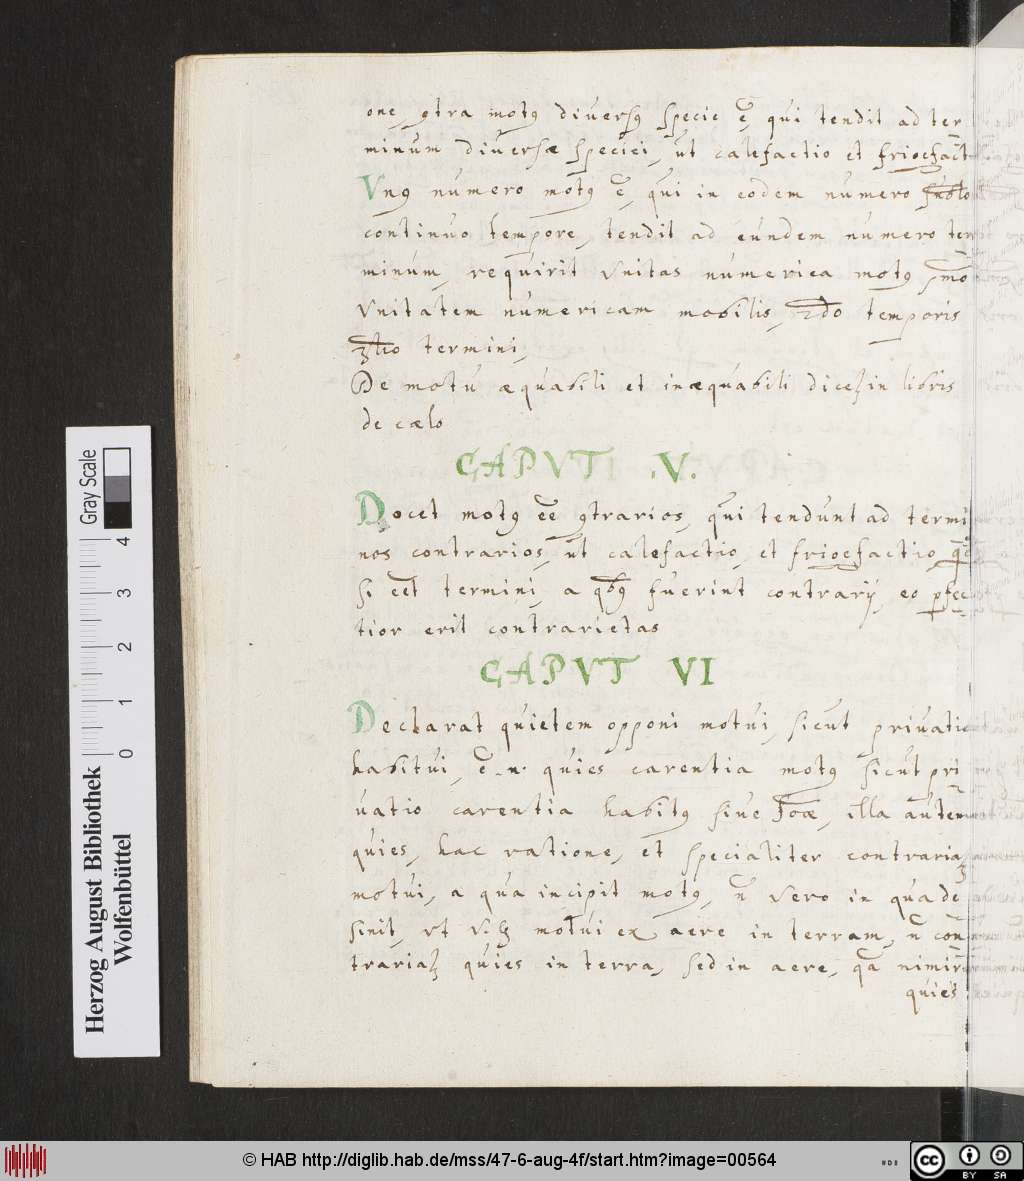 one, ꝯtra motꝰ diversꝰ specie ē, qui tendit ad ter¬
minum diversæ speciei, ut calefactio et frigefact
Vnꝰ numero motꝰ ē, qui in eodem numero
continuo tempore, tendit ad eundem numero ter
minum, requirit vnitas numerica motꝰ pmo
vnitatem numericam mobilis, 2do temporis
3tio termini,
De motu æquabili et inæquabili dicetꝛ in libris
de cælo
CAPVT .V.
Docet motꝰ ēē ꝯtrarios, qui tendunt ad termi
nos contrarios, ut calefactio, et frigefactio,
si eēt termini, a qbꝰ fuerint contrarij, eo ꝑfec
tior erit contrarietas
CAPVT VI
Declarat quietem opponi motui, sicut privatio
habitui, ē .n. quies carentia motꝰ sicut pri
vatio carentia habitꝰ sive foꝛæ, illa autem
quies, hac ratione, et specialiter contrariatꝛ
motui, a qua incipit motꝰ, ñ vero in qua de
sinit, vt v.g motui ex aere in terram, ñ con¬
trariatꝛ quies in terra, sed in aere, qa nimir
quies
Herzog August Bibliothek
Wolfenbüttel
0 1 2 3 4
Gray Scale
© HAB http://diglib.hab.de/mss/47-6-aug-4f/start.htm?image=00564
cc BY SA